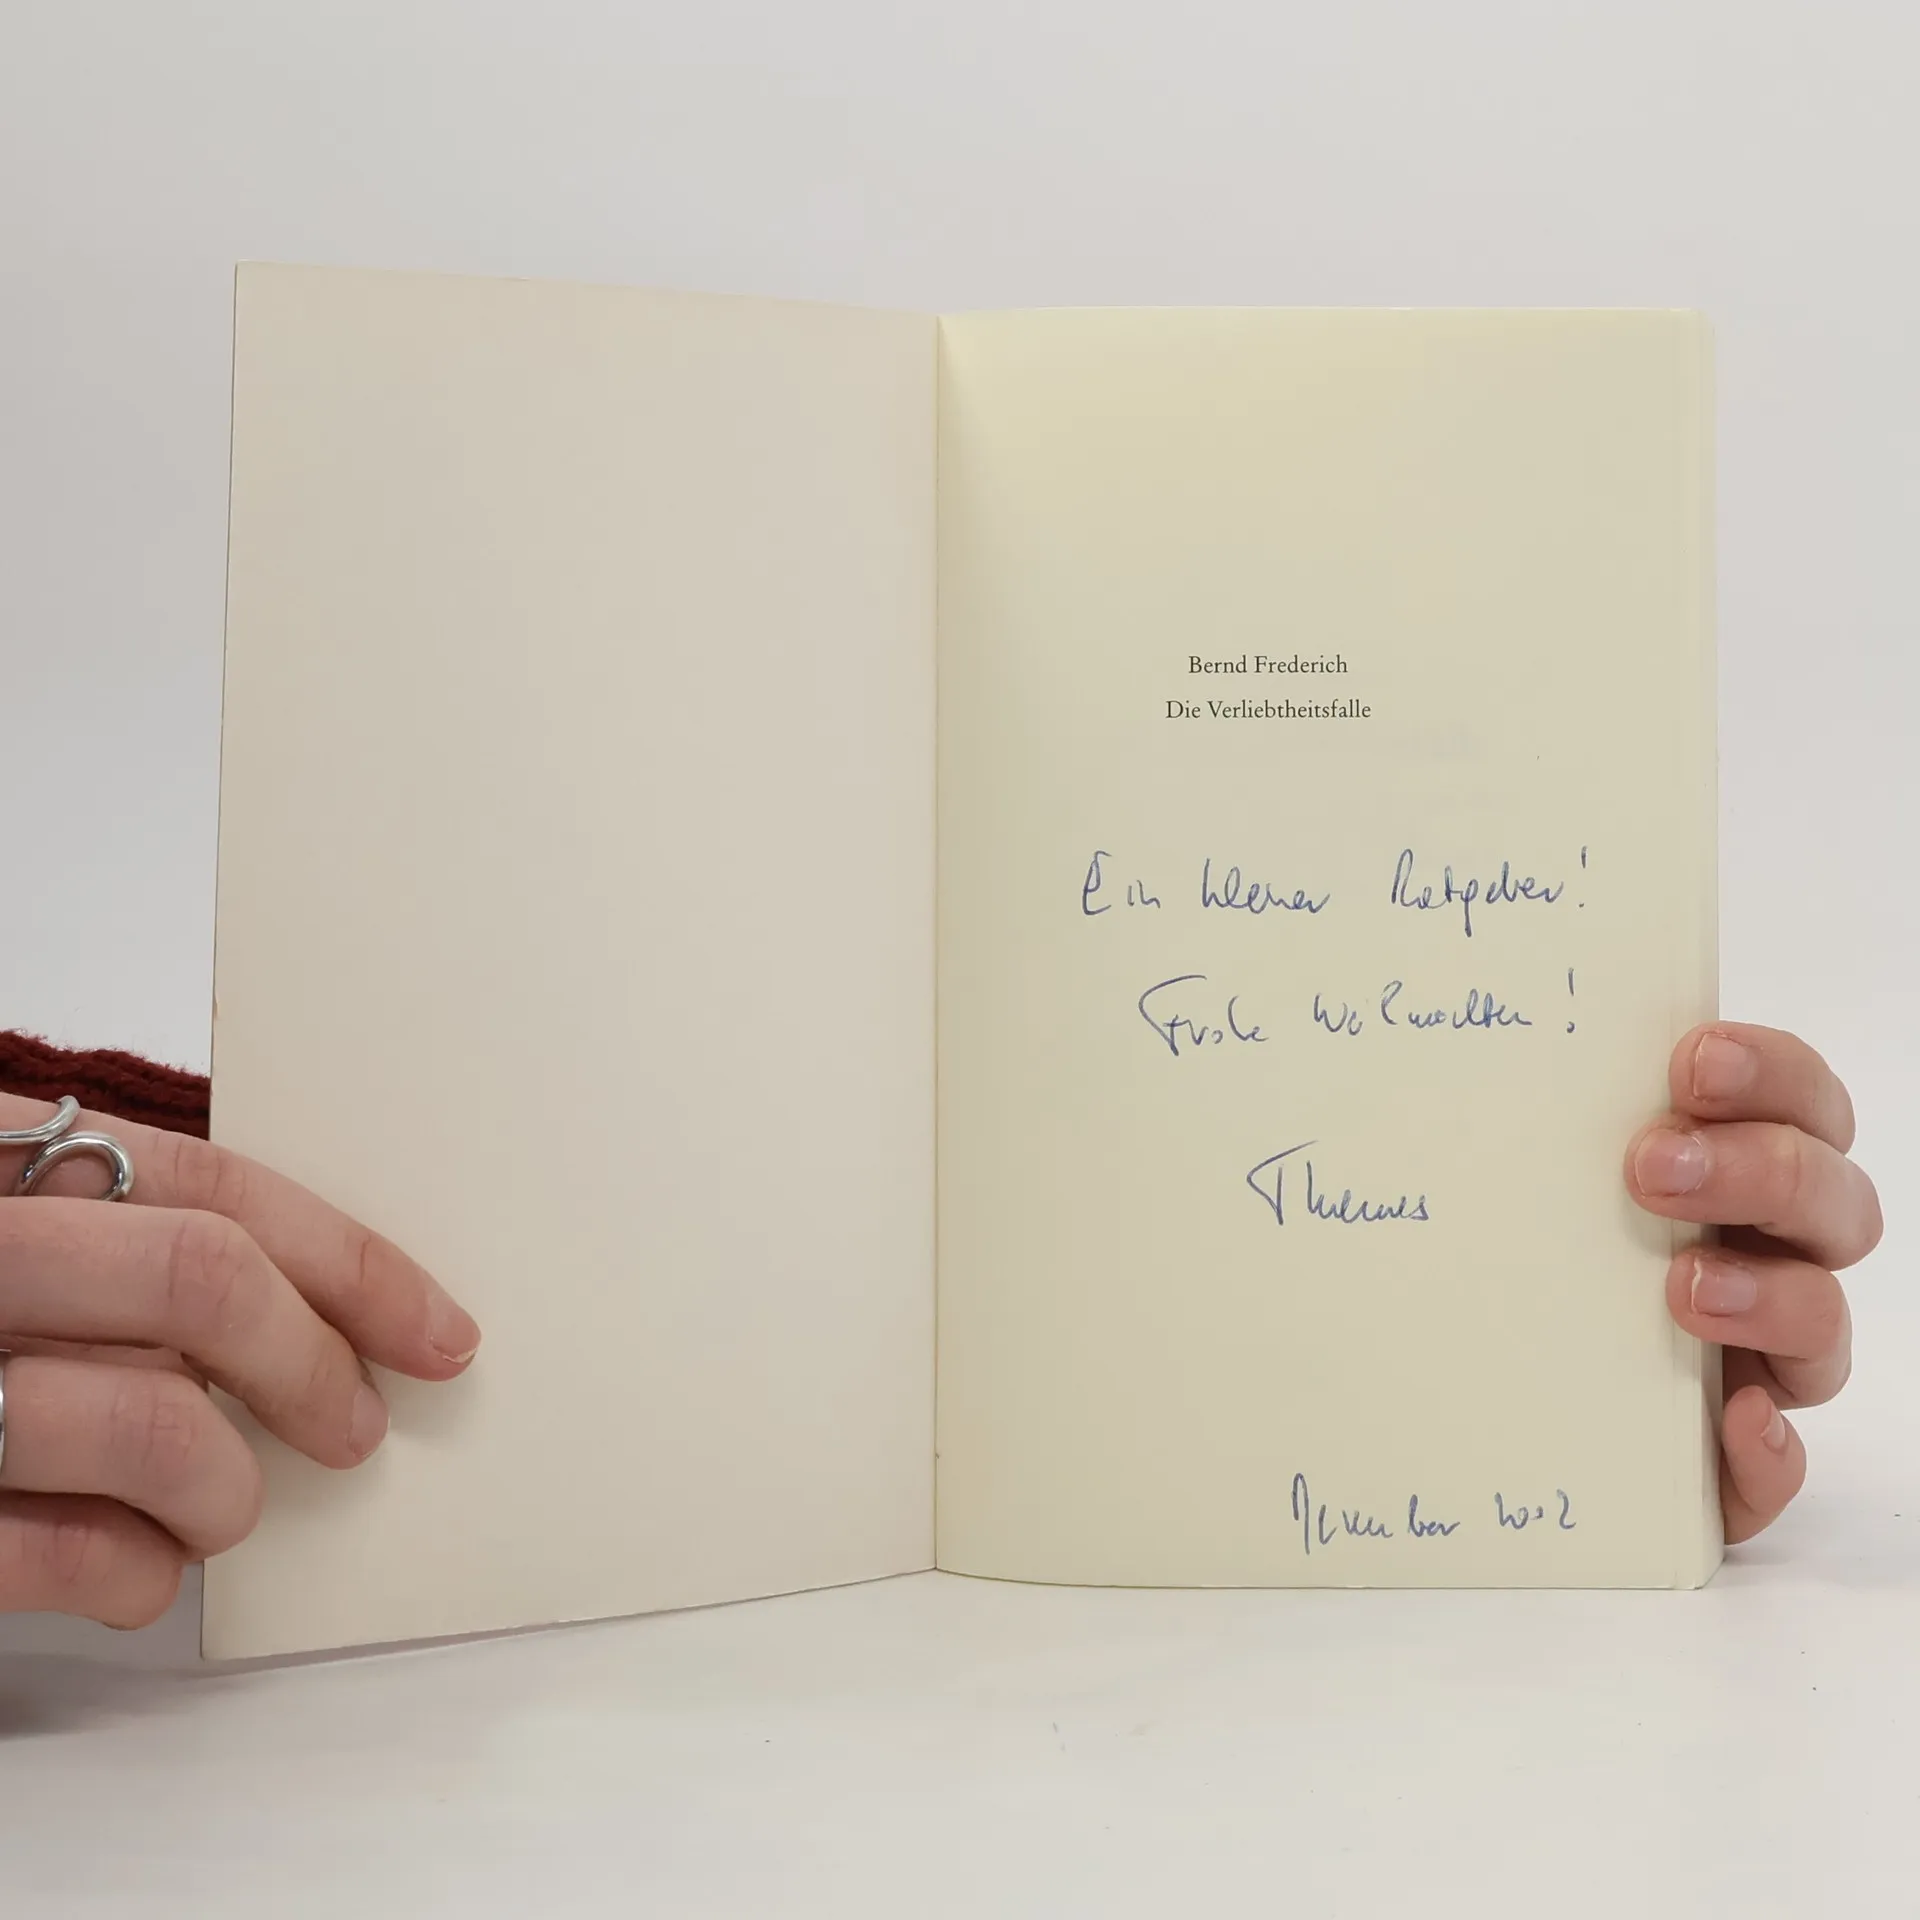 Bernd Frederich
Die Verliebtheitsfalle
Ein kleiner Ratgeber!
Frohe Weihnachten!
Thomas
2002